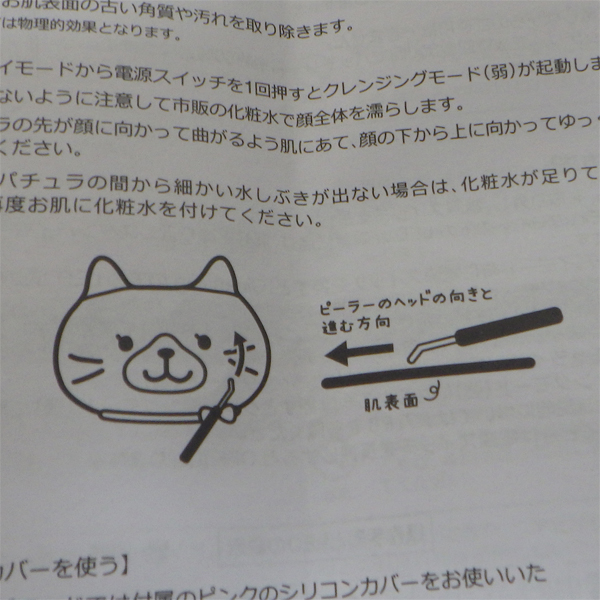 お肌表面の古い角質や汚れを取り除きます。
は物理的効果となります。
イモードから電源スイッチを1回押すとクレンジングモード(弱)が起動しま
ないように注意して市販の化粧水で顔全体を濡らします。
ラの先が顔に向かって曲がるよう肌にあて、顔の下から上に向かってゆっ
ください。
パチュラの間から細かい水しぶきが出ない場合は、化粧水が足りて
再度お肌に化粧水を付けてください。
ピーラーのヘッドの向きと
進む方向
肌表面
カバーを使う】
では付属のピンクのシリコンカバーをお使いいた